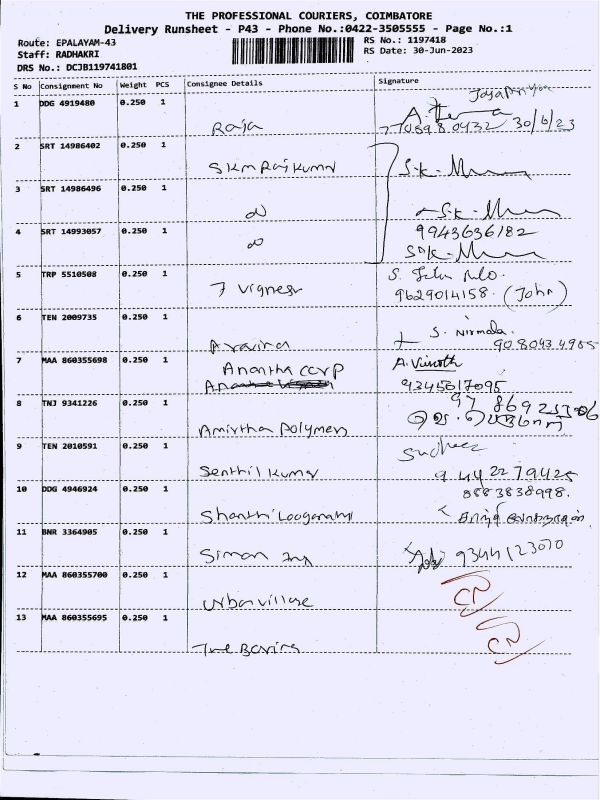 THE PROFESSIONAL COURIERS, COIMBATORE
Delivery Runsheet - P43 - Phone No.:0422-3505555 - Page No.:1
Route: EPALAYAM-43
Staff: RADHAKRI
DRS No.: DCJB119741801
RS No.: 1197418
RS Date: 30-Jun-2023
S No Consignment No Weight PCS Consignee Details Signature
1 DDG 4919480 0.250 1
Raja
30/6/23
2 SRT 14986402 0.250 1
SKM Rajkumar
3 SRT 14986496 0.250 1
4 SRT 14993057 0.250 1
9943636182
5 TRP 5510508 0.250 1
Vignesh
9629014158. (John)
6 TEN 2009735 0.250 1
Aravind
S. Nirmala.
7 MAA 860355698 0.250 1
Anantha corp
A. Vinoth
9345617095
8 TNJ 9341226 0.250 1
Amirtha polymers
9 TEN 2010591 0.250 1
Senthil kumar
Sudheer
9442279425
10 DDG 4946924 0.250 1
Shanthi Looganathan
8883838998.
11 BNR 3364905 0.250 1
Simon
9344123070
12 MAA 860355700 0.250 1
urban village
CN
13 MAA 860355695 0.250 1
The
CN